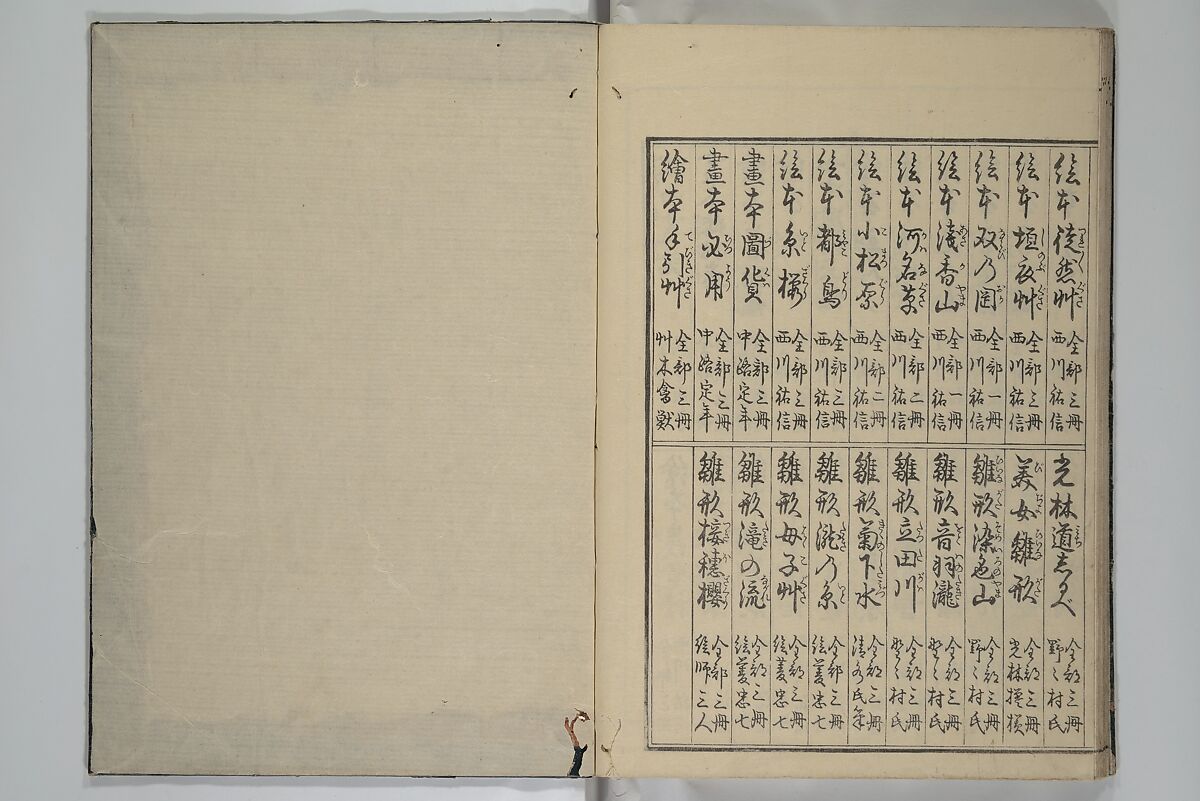 絵本徒然艸 全部三冊 西川祐信
絵本垣衣艸 全部三冊 西川祐信
絵本双乃岡 全部一冊 西川祐信
絵本浅香山 全部一冊 西川祐信
絵本河名草 全部二冊 西川祐信
絵本小松原 全部二冊 西川祐信
絵本都鳥 全部三冊 西川祐信
絵本糸櫻 全部三冊 西川祐信
畫本圖貨 全部三冊 中路定年
畫本必用 全部三冊 中路定年
繪本手引艸 全部三冊 艸木禽獣
光林道志るべ 全部三冊 野々村氏
美女雛形 全部三冊 光林模様
雛形染色山 全部三冊 野々村氏
雛形音羽瀧 全部三冊 野々村氏
雛形立田川 全部三冊 野々村氏
雛形菊下水 全部三冊 清水氏筆
雛形瀧乃糸 全部三冊 絵菱忠七
雛形母子艸 全部三冊 絵菱忠七
雛形滝の流 全部三冊 絵菱忠七
雛形接穂櫻 全部三冊 絵師三人